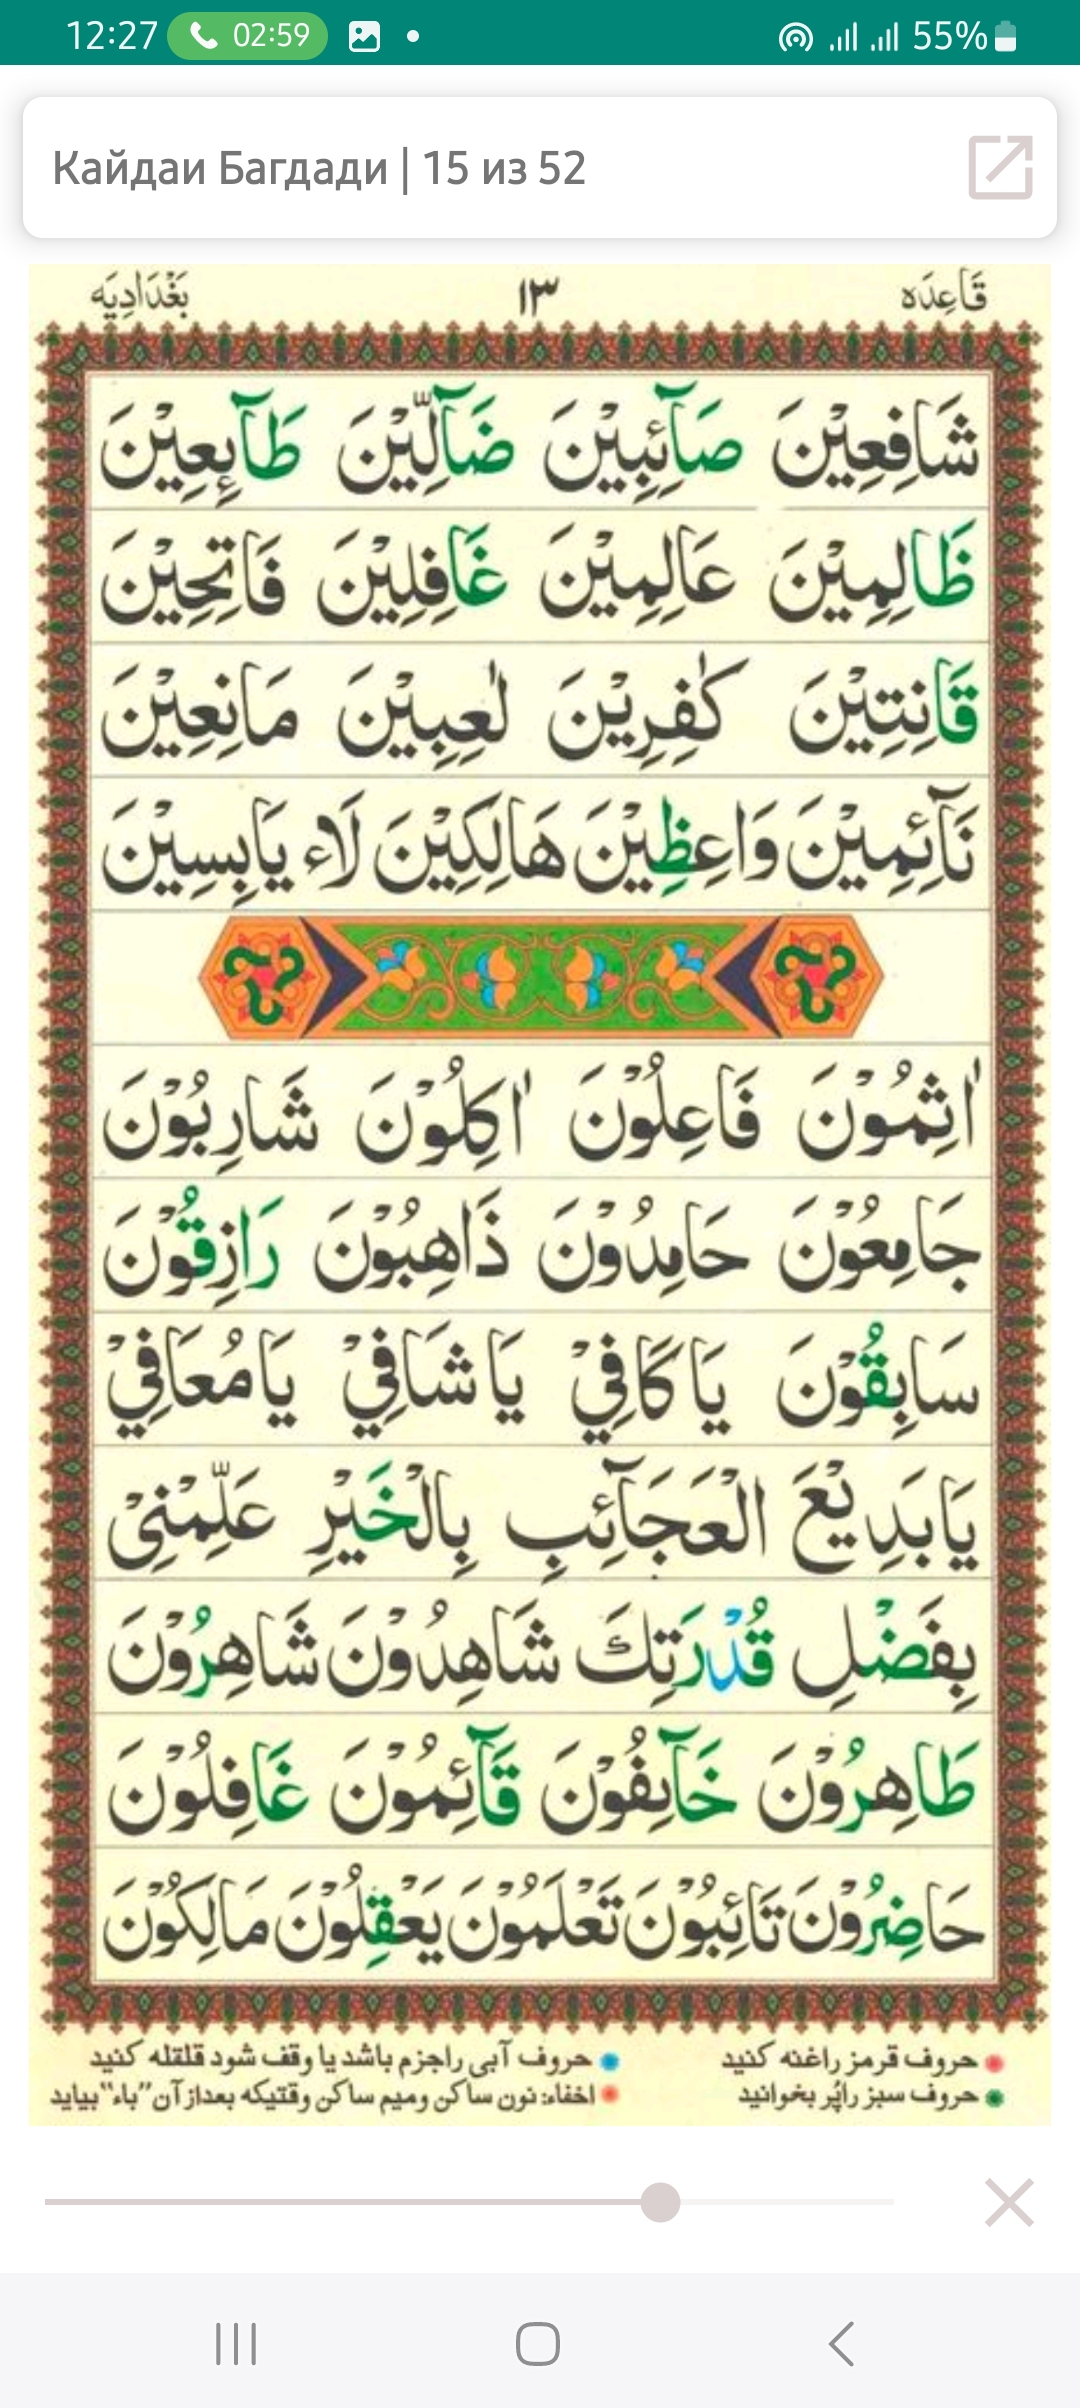 12:27 02:59 55%
Кайдаи Багдади | 15 из 52
قَاعِدَه ١٣ بَغْدَادِيَه
شَافِعِيْنَ صَآئِبِيْنَ ضَآلِّيْنَ طَآئِعِيْنَ
ظَالِمِيْنَ عَالِمِيْنَ غَافِلِيْنَ فَاتِحِيْنَ
قَانِتِيْنَ كٰفِرِيْنَ لٰعِبِيْنَ مَانِعِيْنَ
نَآئِمِيْنَ وَاعِظِيْنَ هَالِكِيْنَ لَاء يَابِسِيْنَ
اٰثِمُوْنَ فَاعِلُوْنَ اٰكِلُوْنَ شَارِبُوْنَ
جَامِعُوْنَ حَامِدُوْنَ ذَاهِبُوْنَ رَازِقُوْنَ
سَابِقُوْنَ يَا كَافِيْ يَا شَافِيْ يَا مُعَافِيْ
يَا بَدِيْعَ الْعَجَآئِبِ بِالْخَيْرِ عَلِّمْنِيْ
بِفَضْلِ قُدْرَتِكَ شَاهِدُوْنَ شَاهِرُوْنَ
طَاهِرُوْنَ خَآئِفُوْنَ قَآئِمُوْنَ غَافِلُوْنَ
حَاضِرُوْنَ تَائِبُوْنَ تَعْلَمُوْنَ يَعْقِلُوْنَ مَالِكُوْنَ
حروف قرمز راغنه کنید حروف آبی راجزم باشد یا وقف شود قلقله کنید
حروف سبز راپُر بخوانید اخفاء: نون ساکن ومیم ساکن وقتیکه بعداز آن "باء" بیاید